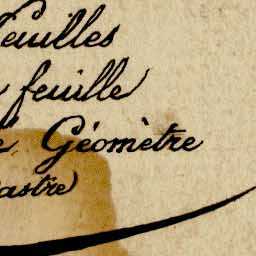 feuilles
feuille
Géomètre